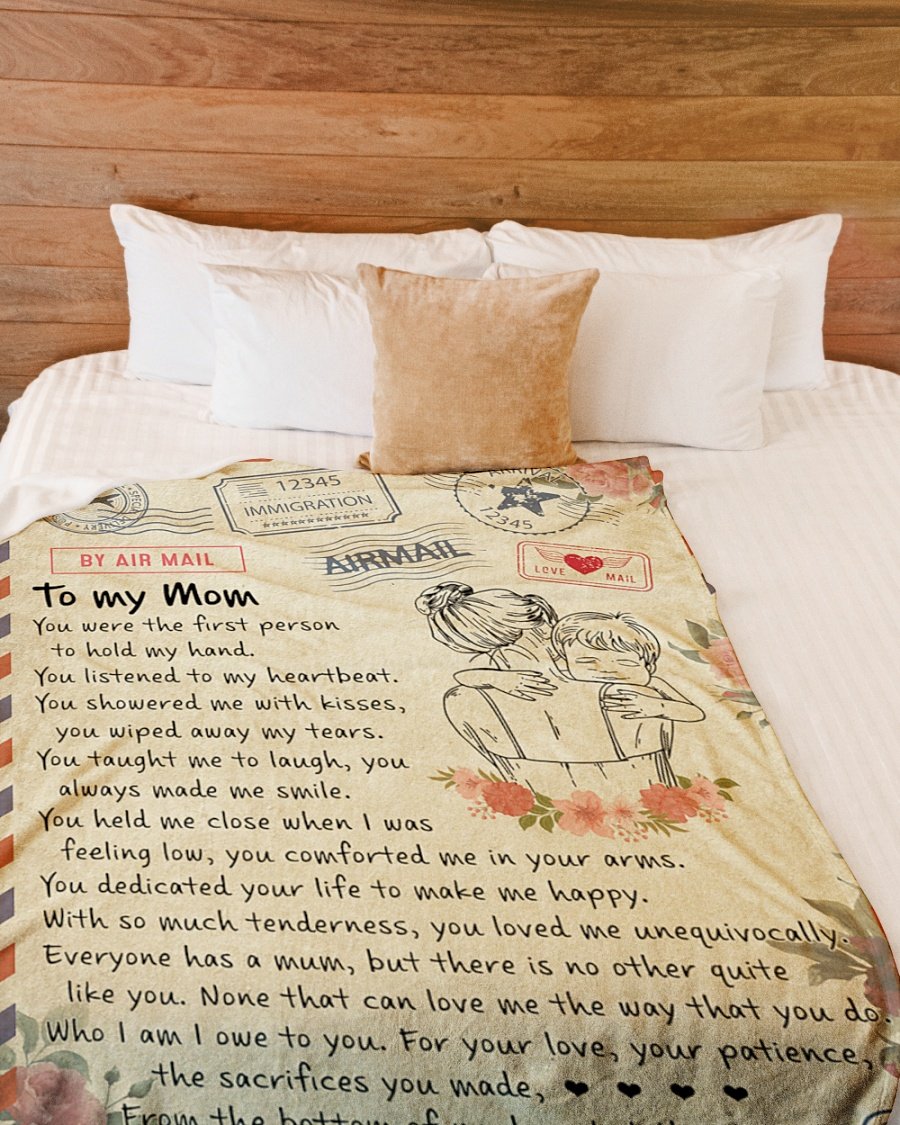 SPECIAL
DELIVERY
12345
IMMIGRATION
ARRIVAL
12345
BY AIR MAIL
AIRMAIL
LOVE MAIL
To my Mom
You were the first person
to hold my hand.
You listened to my heartbeat.
You showered me with kisses,
you wiped away my tears.
You taught me to laugh, you
always made me smile.
You held me close when I was
feeling low, you comforted me in your arms.
You dedicated your life to make me happy.
With so much tenderness, you loved me unequivocally.
Everyone has a mum, but there is no other quite
like you. None that can love me the way that you do.
Who I am I owe to you. For your love, your patience,
the sacrifices you made,
From the bottom of my